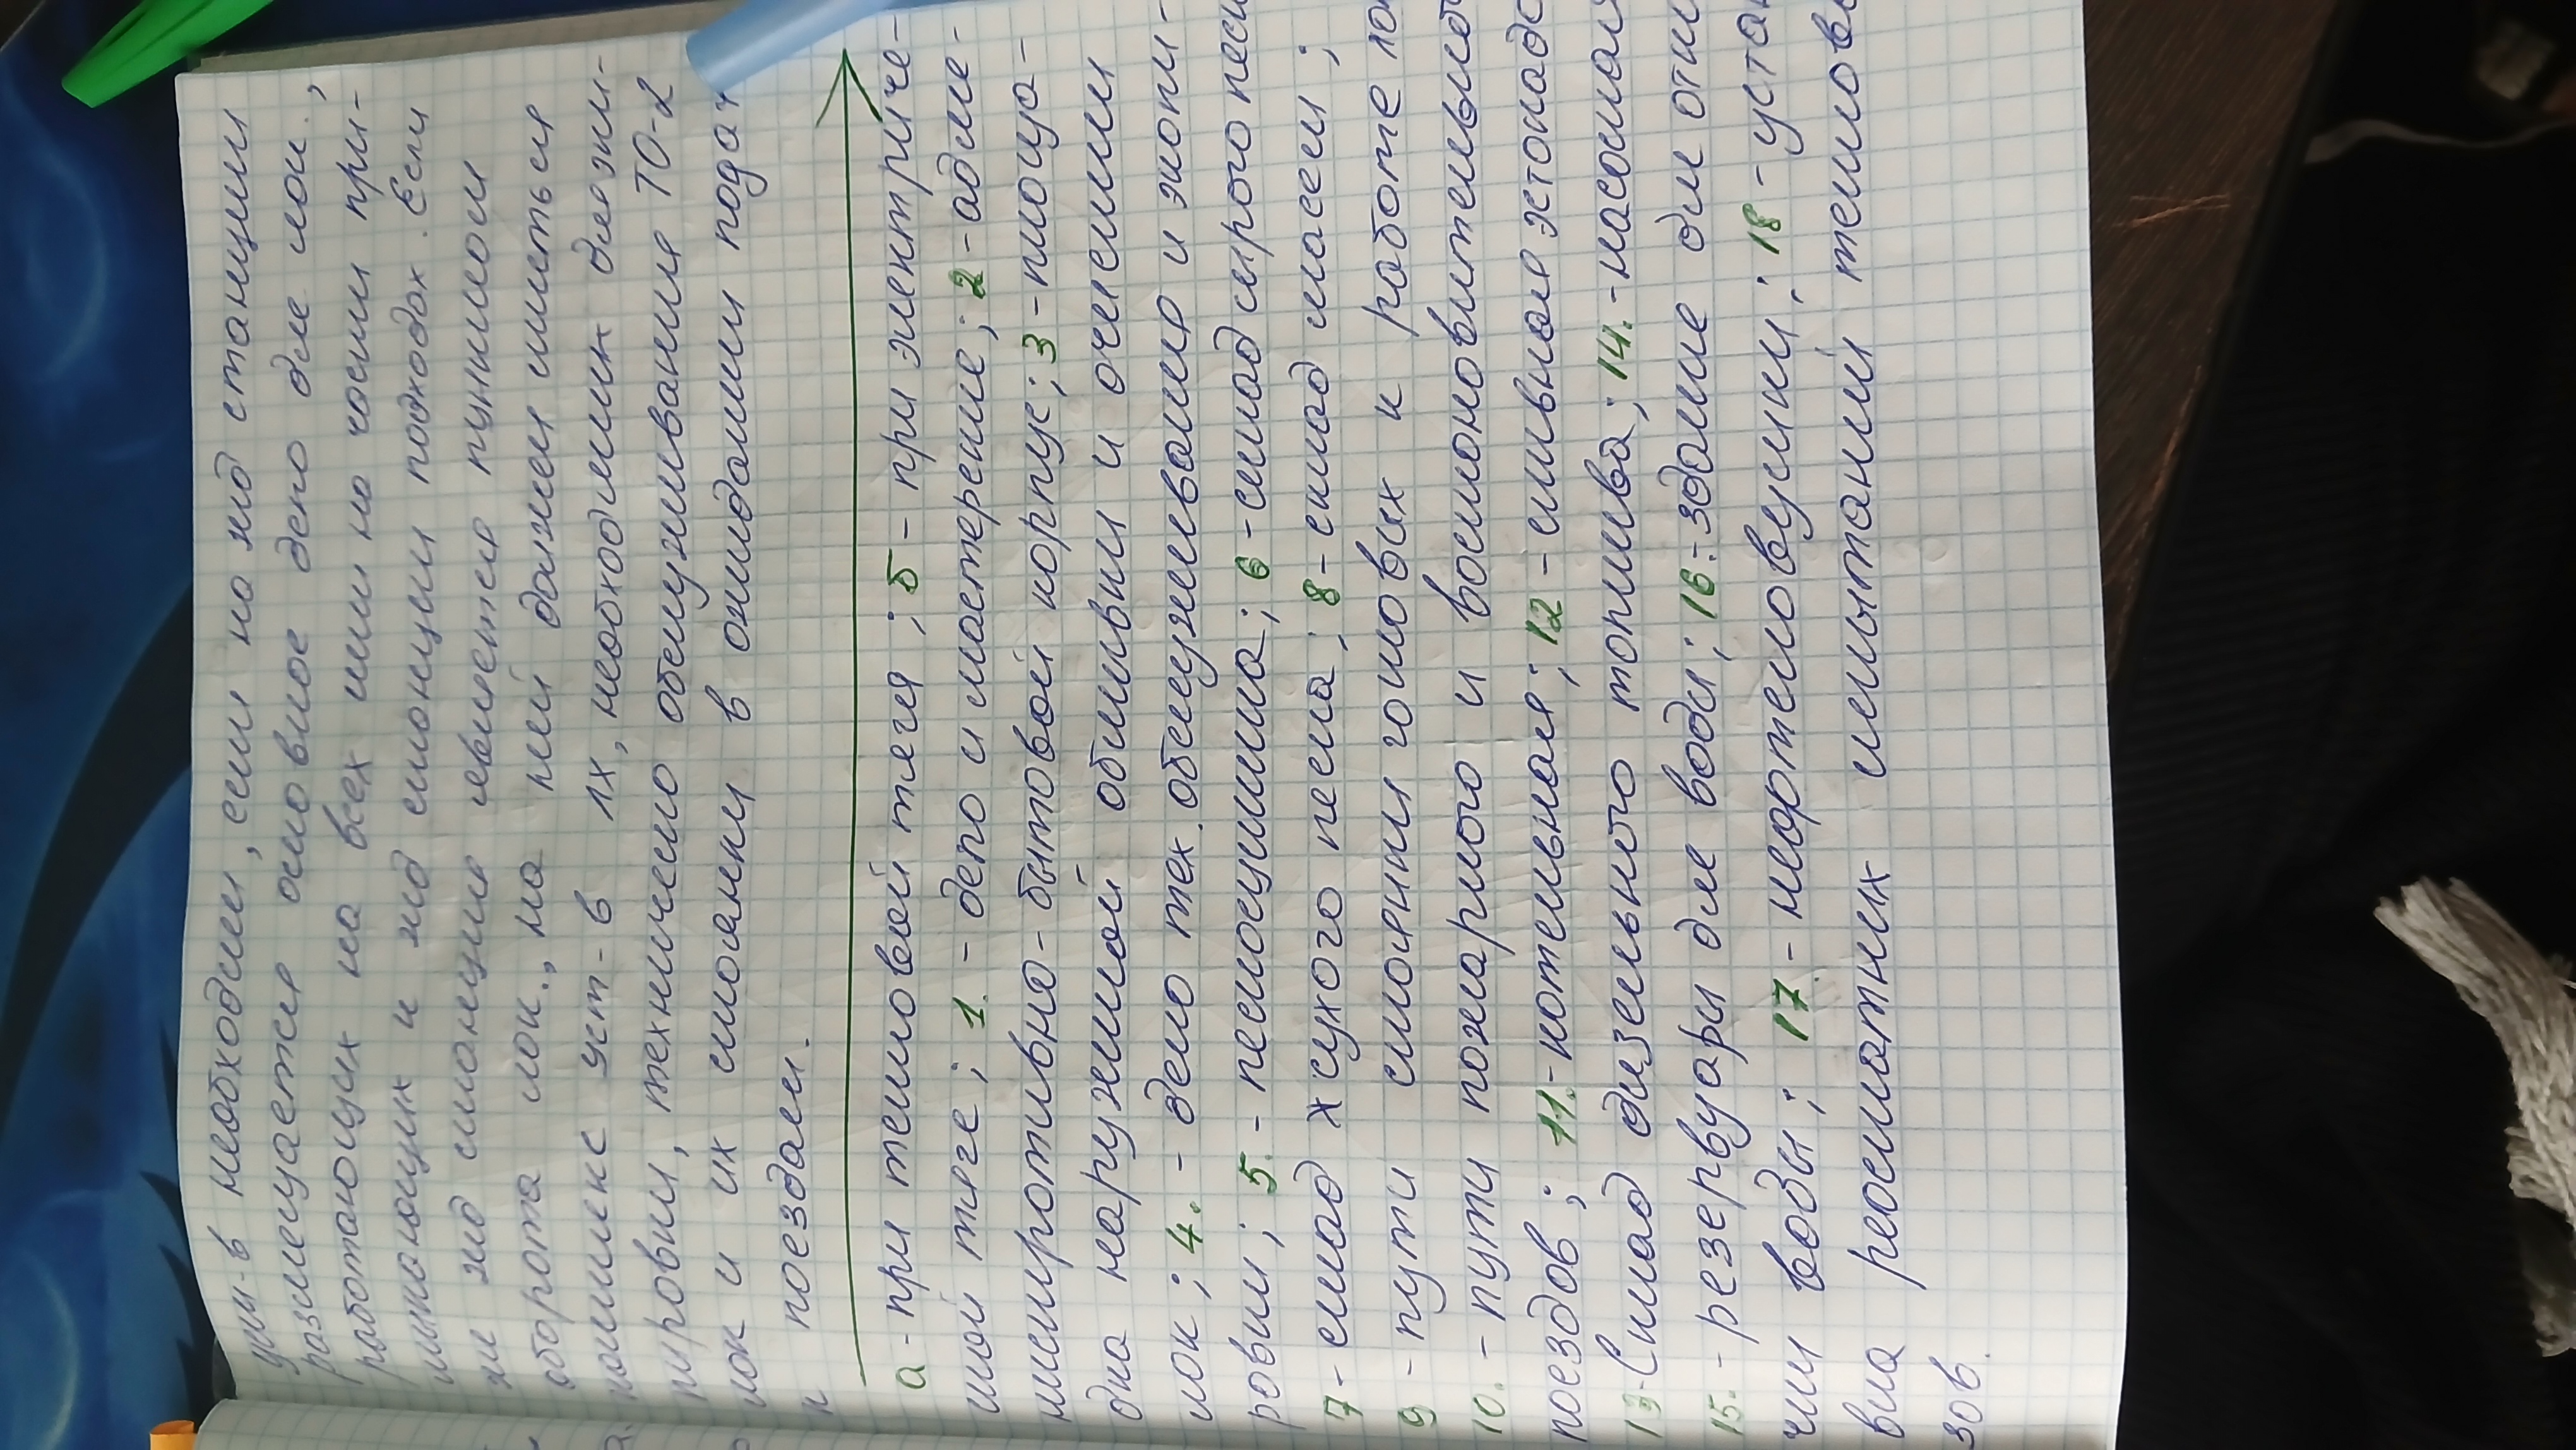 ции в необходим, если на жд станции
размещается основное депо для лок.,
работающих на всех или на части при-
мыкающих к жд станции подходах. Если
же жд станция является пунктом
оборота лок., на ней должен иметься
комплекс уст-в ЛХ, необходимых для эки-
пировки, технического обслуживания ТО-2
лок и их стоянки в ожидании подач
к поездам.
а - при тепловой тяге; б - при электриче-
ской тяге; 1. - депо и мастерские; 2 - адми-
нистротивно-бытовой корпус; 3 - площа-
дка наружной обмывки и очистки
лок; 4. - здно тех. обслуживания и экипи-
ровки; 5. - пескосушилка; 6 - склад сырого песка
7 - склад сухого песка; 8 - склад масел;
9 - пути стоянки готовых к работе лок
10. - пути пожарного и восстановительного
поездов; 11. - котельная; 12 - сливная эстокада
13 - Склад дизельного топлива; 14. - насосная
15. - резервуары для воды; 16. - здание для
чки воды; 17. - нефтеловушки; 18 - устан
вка реостатных испытаний теплово
зов.